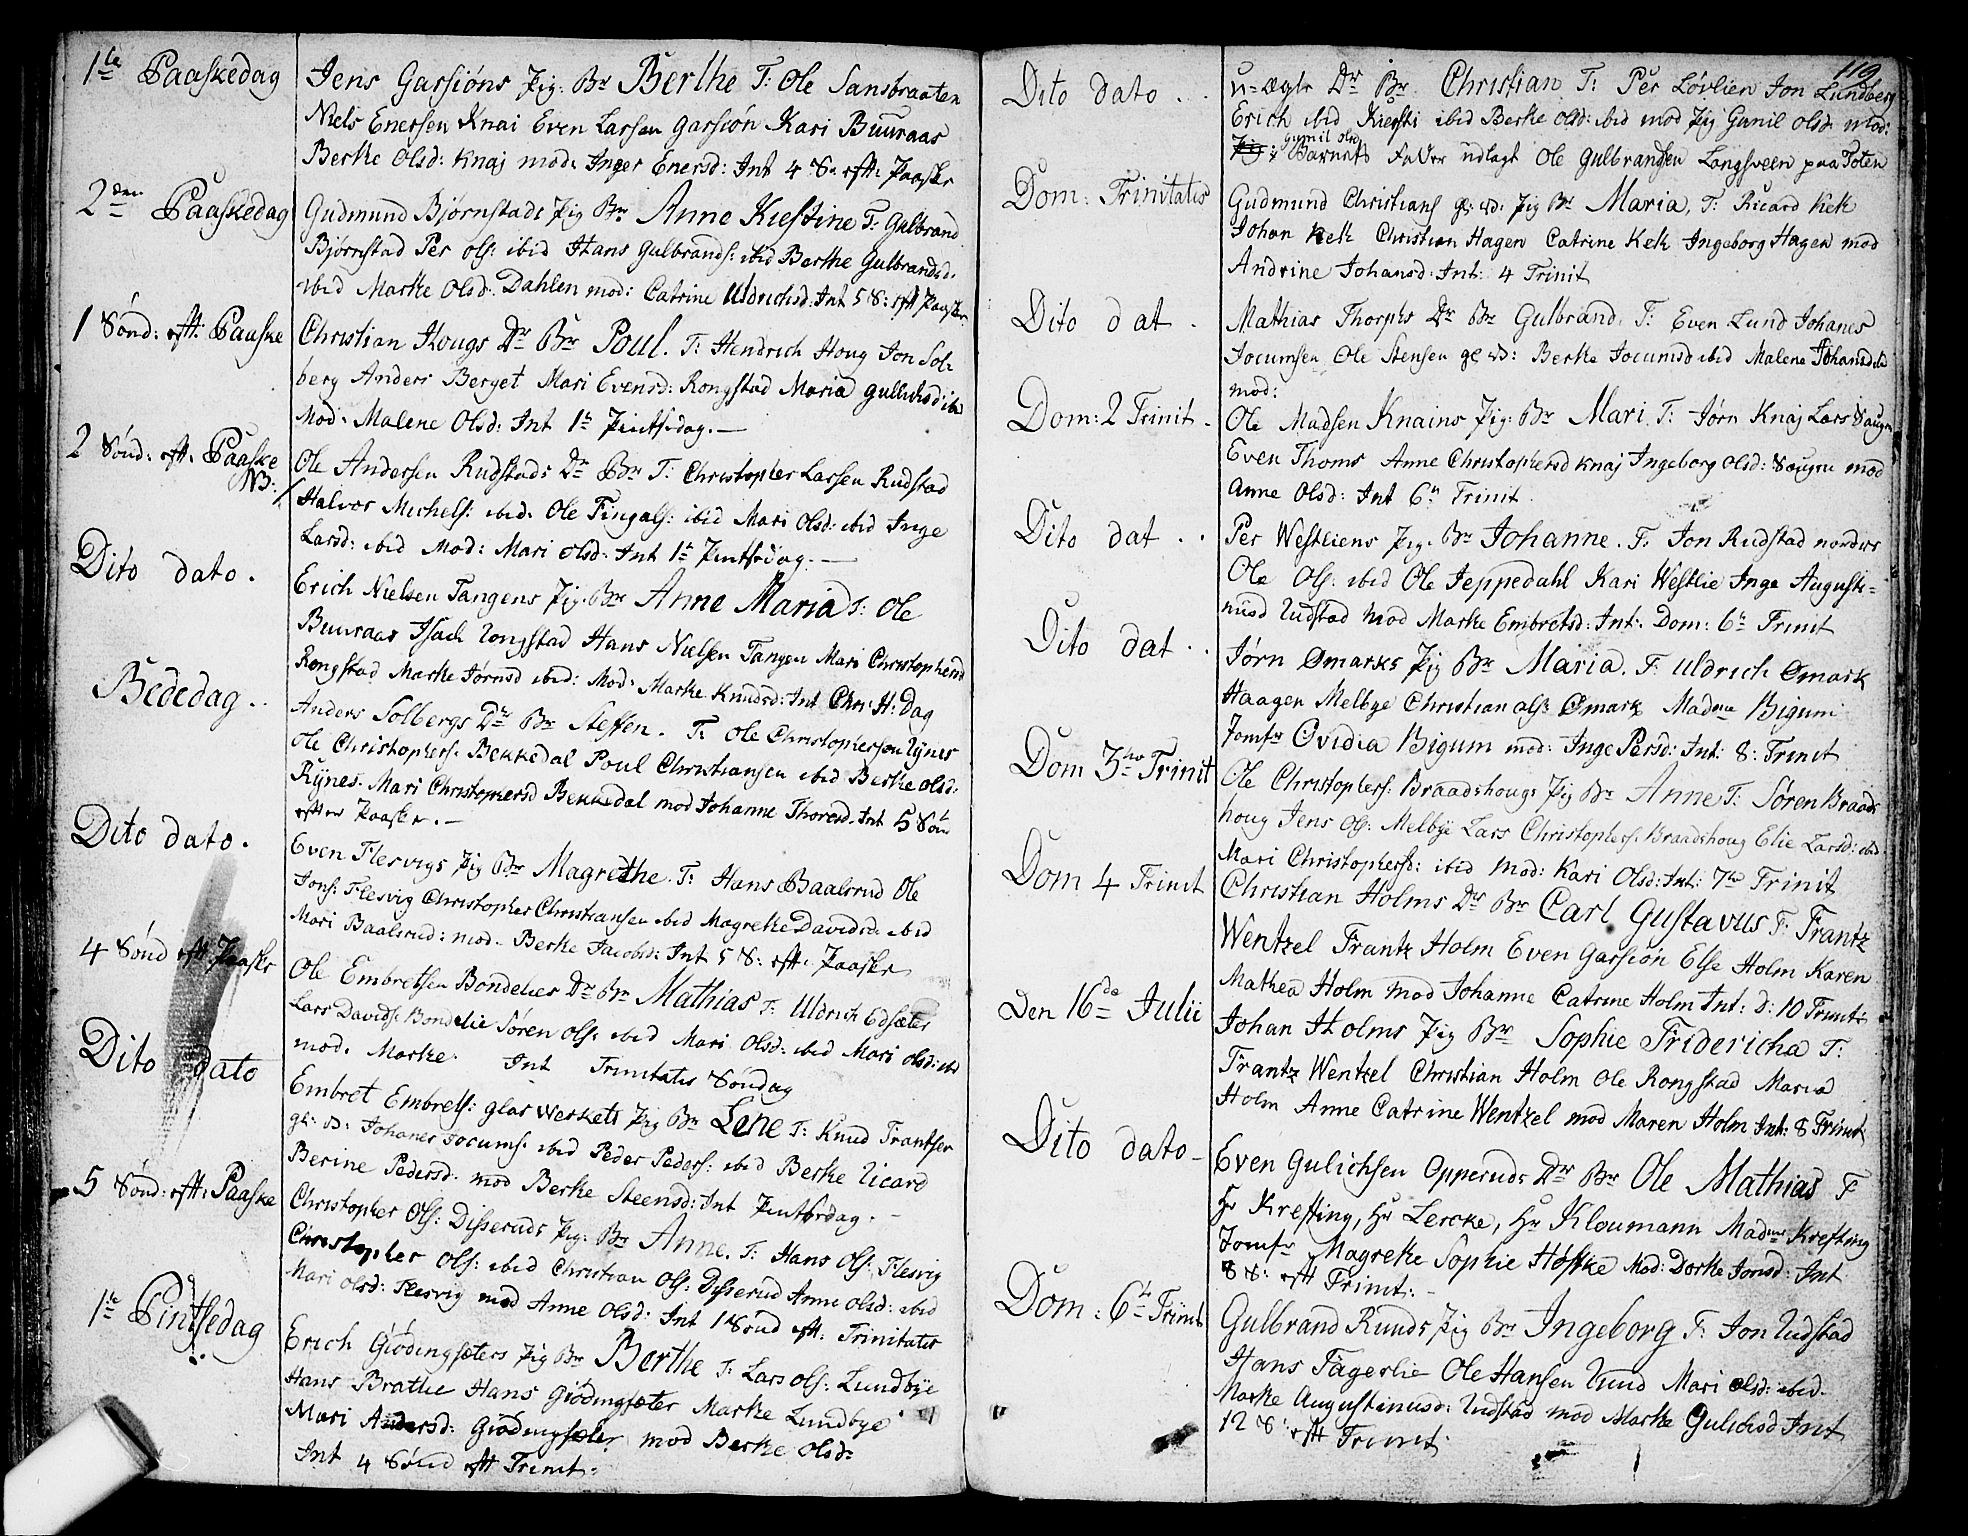 1te Paaskedag
Jens Garsiöns Pig: Br Berthe T: Ole Sansbraaten
Niels Enersen Knai Even Larsen Garsiön Kari Buuraas
Berthe Olsd: Knaj mod: Inger Enersd: Int 4 S: eft: Paaske
2den Paaskedag
Gudmund Bjørnstads Pig Br Anne Kiestine T: Gulbrand
Bjørnstad Per ols: ibid Hans Gulbrands: ibid Berthe Gulbrandsd:
ibid Marthe Olsd: Dahlen mod: Catrine Uldrichsd: Int 5 S: eft Paaske
1 Sönd: eft: Paaske
Christian Hougs Dr Br Poul. T: Hendrich Houg Jon Sol-
berg Anders Berget Mari Evensd: Rongstad Maria Gullichsd ibd
Mod: Malene Olsd: Int 1te Pintsedag. —
2 Sönd: eft: Paaske
NB:
Ole Andersen Rudstads Dr Br T: Christopher Larsen Rudstad
Halvor Michels: ibid: Ole Fingals: ibid Mari Olsd: ibid Inge
Larsd: ibid Mod: Mari olsd: Int 1te Pintsedag. —
Dito dato.
Erich Nielsen Tangens Pig: Br Anne Maria T: Ole
Buuraas Isach Rongstad Hans Nielsen Tangen Mari Christophersd
Rongstad Marthe Jörnsd ibid: Mod: Marthe Knudsd: Int Chr: H: Dag
Bededag..
Anders Solbergs Dr Br Steffen. T: Ole Christophersen Rÿnes
Ole Christophers: Bekkedal Poul Christiansen ibid Berthe olsd:
Rÿnes. Mari Christophersd Bekkedal mod Johanne Thoresd. Int 5 Sön
efter Paaske. —
Dito dato.
Even Flesvigs Pig Br Magrethe. T: Hans Baalsrud Ole
Jons: Flesvig Christopher Christiansen ibid Magrethe Davidsd: ibid
Mari Baalsrud: mod. Berthe Jacobsd: Int 5 S: eft: Paaske
4 Sönd eft Paaske
Ole Embretsen Bondelies Dr Br Mathias T: Uldrich Edsæter
Lars Davids: Bondelie Søren ols: ibid Mari Olsd: ibid Mari olsd: ibd
mod: Marthe. Int Trinitatis Söndag
Dito dato
Embret Embrets: glasWerkets Pig Br Lene T: Knud Frantsen
gl: v: Johanes Jocums: ibid Peder Peders: ibid Berthe Ricard
Berine Pedersd: mod Berthe Steensd: Int Pintsedag. —
5 Sönd: eft: Paaske
Christopher Ols: Disseruds Pig: Br Anne. T: Hans Ols: Flesvig
Christopher Ols: ibid Christian Ols: Disserud Anne olsd: ibid
Mari olsd: Flesvig mod Anne Olsd: Int 1 Sönd eft: Trinitatis
1te Pintsedag
Erich Giödingsæters Pig Br Berthe T: Lars ols: Lundbÿe
Hans Brathe Hans Giödingsæter Marthe Lundbye
Mari Andersd: Giödingsæter mod Berthe Olsd:
Int 4 Sönd eft Trinit:
119
Dito dato..
u-ægte Dr Br. Christian T: Per Lövlien Jon Lundberg
Erich ibid Kiersti ibid Berthe Olsd: ibid mod Pig Gunil Olsd: mod:
gunil olsd
Pig: Barnets Fader udlagt Ole Gulbrandsen Langsveen paa Toten
Dom: Trinitatis
Gudmund Christians gl: v: Pig Br Maria, T: Ricard Kek
Johan Kek Christian Hagen Catrine Kek Ingeborg Hagen mod
Andrine Johansd: Int: 4 Trinit
Dito dat.
Mathias Thorphs Dr Br Gulbrand. T: Even Lund Johanes
Jocumsen Ole Stensen gl v: Berthe Jocumsd ibid Malene Johansd ibd
mod:
Dom: 2 Trinit.
Ole Madsen Knains Pig: Br Mari T: Jørn Knaj Lars Saugen
Even Thoms Anne Christophersd Knaj Ingeborg Olsd: Saugen mod
Anne Olsd: Int 6te Trinit.
Dito dat..
Per Westliens Pig. Br Johanne. T: Jon Rudstad nordre
Ole Ols: ibid Ole Jeppedahl Kari Westlie Inge Augusti-
nusd Rudstad mod Marthe Embretsd: Int: Dom: 6te Trinit
Dito dat..
Jørn Ømarks Pig Br Maria. T: Uldrich Ømark
Haagen Melbye Christian ols: Ømark Madme Bigum
Jomfr Ovidia Bigum mod: Inge Persd: Int: 8: Trinit
Dom 3tio Trinit
Ole Christophers: Braadshougs Pig Br Anne T: Søren Braads
houg Jens Ols: Melbye Lars Christophers: Braadshoug Elie Larsd: ibd
Mari Christophersd: ibid Mod: Kari Olsd: Int: 7de Trinit
Dom 4 Trinit
Christian Holms Dr Br Carl Gustavus T: Frantz
Wentzel Frantz Holm Even Garsiön Else Holm Karen
Mathea Holm mod Johanne Catrine Holm Int: D: 10 Trinit:
Den 16de Julii
Johan Holms Pig Br Sophie Fridericha T:
Frantz Wentzel Christian Holm Ole Rongstad Maria
Holm Anne Catrine Wentzel mod Maren Holm Int: 8 Trinit
Dito dato-
Even Gulichsen Opperuds Dr Br Ole Mathias T
Hr Krefting, Hr Lercke, Hr Kloumann Madme Krefting
Jomfr Magrethe Sophie Høfke Mod: Dorthe Jonsd: Int
8 S: eft Trinit: -
Dom: 6te Trinit
Gulbrand Ruuds Pig Br Ingeborg T: Jon Rudstad
Hans Fagerlie Ole Hansen Ruud Mari olsd: ibid.
Marthe Augustinusd: Rudstad mod Marthe Gulichsd Int
12 S: eft Trinit.